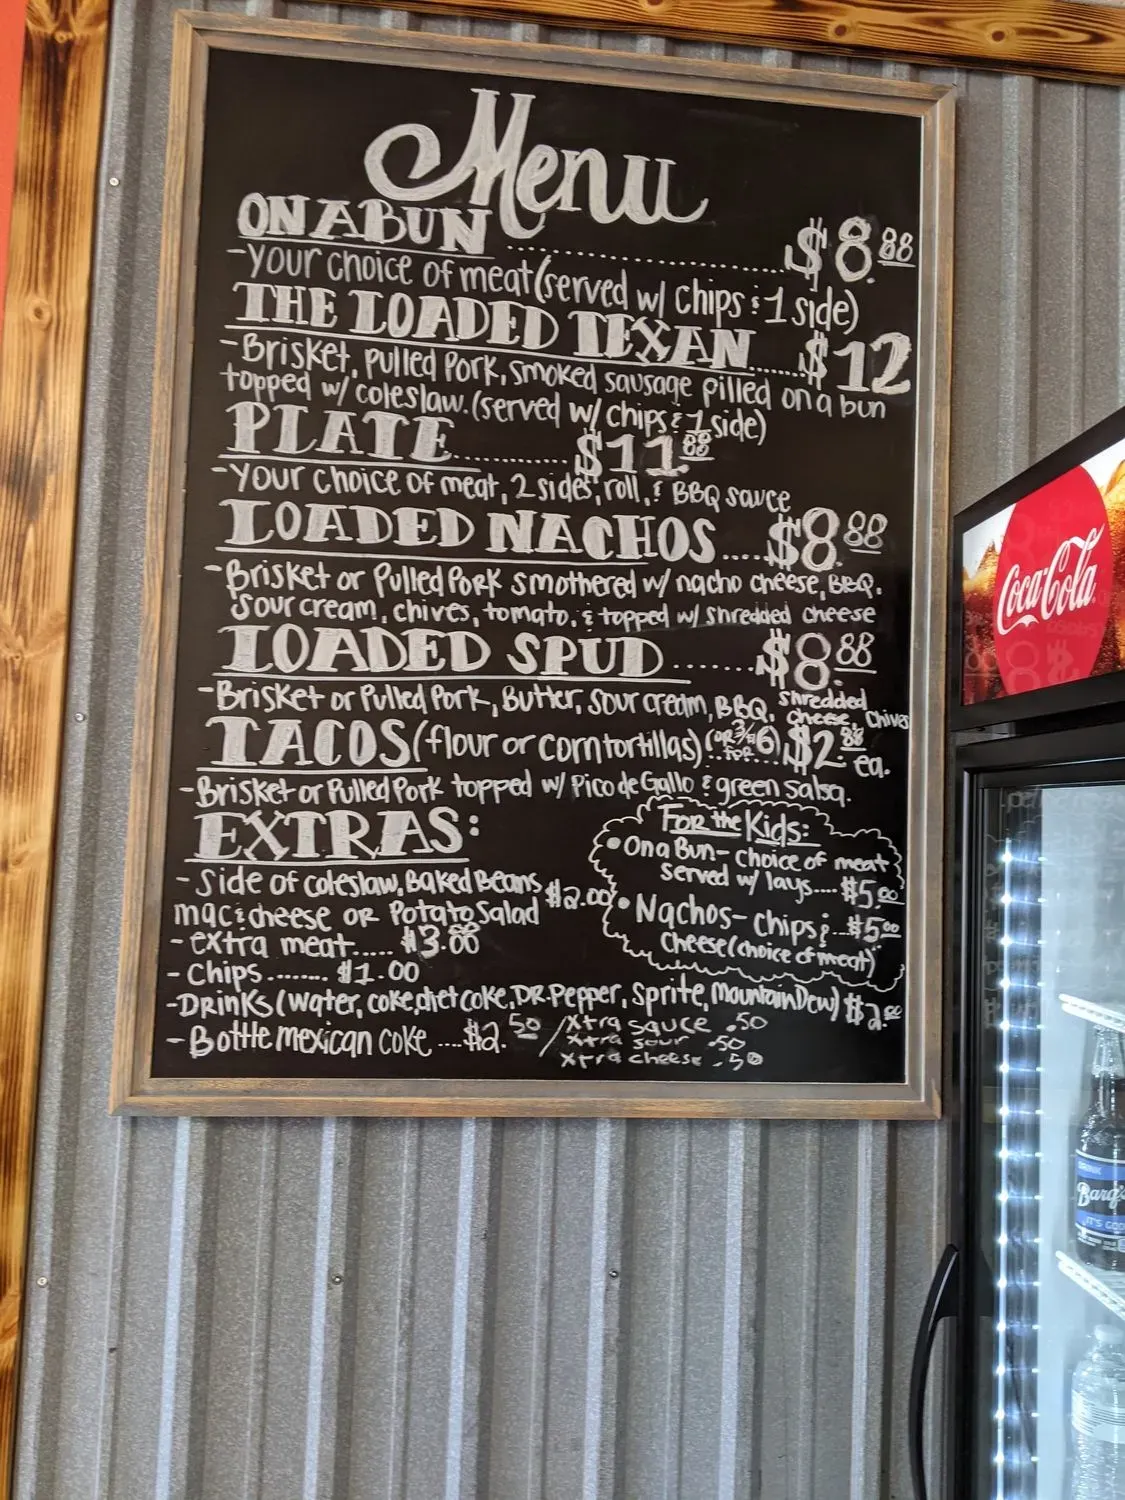 Menu
ON A BUN ........ $8.88
-Your choice of meat (served w/ chips & 1 side)
THE LOADED TEXAN ..... $12
-Brisket, Pulled Pork, smoked sausage pilled on a bun
topped w/ coleslaw. (served w/ chips & 1 side)
PLATE ........... $11.88
-Your choice of meat, 2 sides, roll, & BBQ sauce
LOADED NACHOS ..... $8.88
-Brisket or Pulled Pork smothered w/ nacho cheese, BBQ.
Sour cream, chives, tomato. & topped w/ shredded cheese
LOADED SPUD ....... $8.88
-Brisket or Pulled Pork, Butter, Sour cream, BBQ. shredded cheese, chives
TACOS (flour or corn tortillas) (or 3/$6 for) $2.88 ea.
-Brisket or Pulled Pork topped w/ Pico de Gallo & green salsa.
EXTRAS:
- Side of coleslaw, Baked Beans $2.00
mac & cheese or Potato Salad
- extra meat..... $3.00
- Chips........ $1.00
-Drinks (water, coke, diet coke, DR. Pepper, Sprite, Mountain Dew) $2.00
- Bottle mexican coke ....$2.50 / xtra sauce .50
xtra sour .50
xtra cheese .50
For the Kids:
• On a Bun- choice of meat
served w/ lays.... $5.00
• Nachos- chips & ...$5.00
cheese (choice of meat)
Coca-Cola
DRINK
Barq's
IT'S GOOD